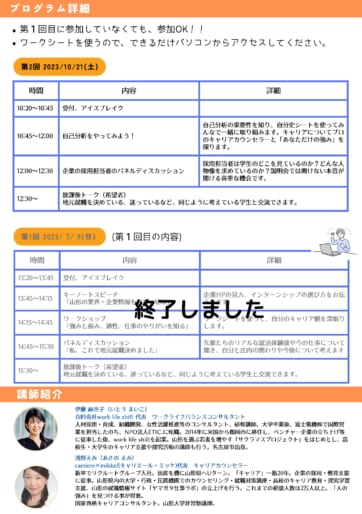 プログラム詳細
• 第１回目に参加していなくても、参加OK！！
• ワークシートを使うので、できるだけパソコンからアクセスしてください。
第2回 2023/10/21(土)
時間 内容 詳細
10:20〜10:45 受付、アイスブレイク
10:45〜12:00 自己分析をやってみよう！ 自己分析の重要性を知り、自分史シートを使ってみ
んなで一緒に取り組みます。キャリアについてプロ
のキャリアカウンセラーと「あなただけの強み」を
探ります。
12:00〜12:30 企業の採用担当者のパネルディスカッション 採用担当者は学生のどこを見ているのか？どんな人
物像を求めているのか？説明会では聞けない本音が
聞ける貴重な機会です。
12:30〜 放課後トーク（希望者）
地元就職を決めている、迷っているなど、同じように考えている学生と交流できます。
第1回 2023/ 7/ 9(日) (第１回目の内容)
時間 内容 詳細
13:20〜13:45 受付、アイスブレイク
13:45〜14:15 キーノートスピーチ
「山形の業界・企業情報を 企業HPの見方、インターンシップの選び方をお伝
終了しました
14:15〜14:45 ワークショップ
「強みと弱み、適性、仕事のやりがいを知る」 を使って、自分のキャリア観を深掘り
します。
14:45〜15:30 パネルディスカッション
「私、これで地元就職決めました」 先輩たちのリアルな就活体験談や今の仕事について
聞き、自分と庄内の関わりや今後について考えます
15:30〜 放課後トーク（希望者）
地元就職を決めている、迷っているなど、同じように考えている学生と交流できます。
講師紹介
伊藤 麻衣子（いとう まいこ）
合同会社work life shift 代表 ワークライフバランスコンサルタント
人材採用・育成、組織開発、女性活躍推進等のコンサルタント、研修講師。大学卒業後、
業を担当したのち、NPO法人ETIC.に転職。2014年に
に従事した後、work life shiftを起業。山形を選ぶ若者を増やす「サクラマスプロジェクト」をはじめとし、高
校生・大学生のキャリア支援や探究活動の講師も行う。名古屋市出身。
浅野えみ（あさの えみ）
carriere×mikke(キャリエール・ミッケ)代表 キャリアカウンセラー
新卒でリクルートグループ入社。出産を機に山形県へUターン。「キャリア」一筋20年。企業の採用・教育支援
に従事。山形県内の大学・行政・医療機関でのカウンセリング・就職対策講座・高校のキャリア教育・探究学習
支援、山形の就職情報サイト「ヤマガタ仕事ラボ」の立上げを行う。これまでの相談人数は2万人以上。「人の
強み」を見つける事が得意。
国家資格キャリアコンサルタント。山形大学非常勤講師。